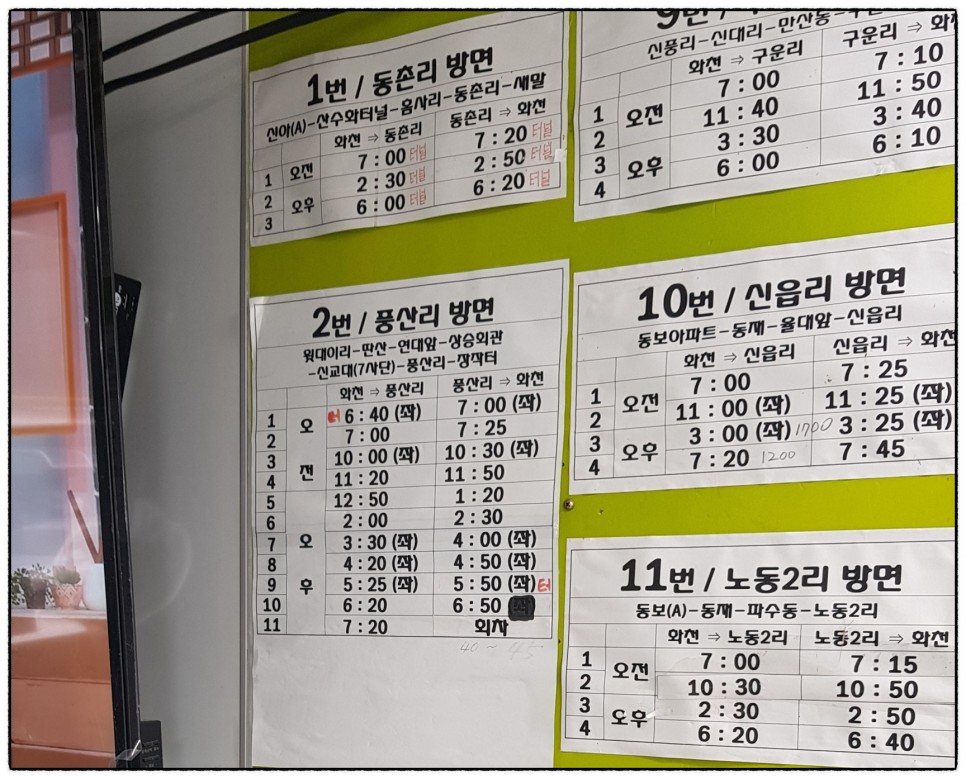 1번 / 동촌리 방면
신아(A)-산수화터널-홈사리-동촌리-새말
화천 ⇒ 동촌리 동촌리 ⇒ 화천
1 오전 7 : 00 터널 7 : 20 터널
2 오후 2 : 30 터널 2 : 50 터널
3 6 : 00 터널 6 : 20 터널
2번 / 풍산리 방면
윗대이리-딴산-연대앞-상승회관
-신교대(7사단)-풍산리-장작터
화천 ⇒ 풍산리 풍산리 ⇒ 화천
1 오전 터 6 : 40 (좌) 7 : 00 (좌)
2 7 : 00 7 : 25
3 10 : 00 (좌) 10 : 30 (좌)
4 11 : 20 11 : 50
5 오후 12 : 50 1 : 20
6 2 : 00 2 : 30
7 3 : 30 (좌) 4 : 00 (좌)
8 4 : 20 (좌) 4 : 50 (좌)
9 5 : 25 (좌) 5 : 50 (좌) 터
10 6 : 20 6 : 50
11 7 : 20 회차
40 ~ 45
9번 /
신풍리-신대리-만산동-
화천 ⇒ 구운리 구운리 ⇒ 화
1 오전 7 : 00 7 : 10
2 11 : 40 11 : 50
3 오후 3 : 30 3 : 40
4 6 : 00 6 : 10
10번 / 신읍리 방면
동보아파트-동재-율대앞-신읍리
화천 ⇒ 신읍리 신읍리 ⇒ 화천
1 오전 7 : 00 7 : 25
2 11 : 00 (좌) 11 : 25 (좌)
3 오후 3 : 00 (좌) 1700 3 : 25 (좌)
4 7 : 20 1200 7 : 45
11번 / 노동2리 방면
동보(A)-동재-파수동-노동2리
화천 ⇒ 노동2리 노동2리 ⇒ 화천
1 오전 7 : 00 7 : 15
2 10 : 30 10 : 50
3 오후 2 : 30 2 : 50
4 6 : 20 6 : 40